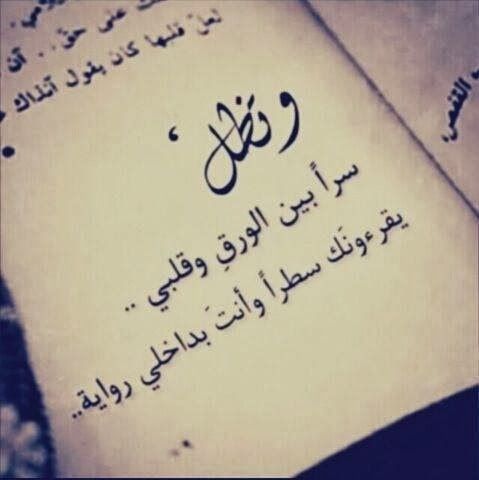 حق .. آن
لعل قلبها كان يقول آنذاك
وتظل ،
سراً بين الورقِ وقلبي ..
يقرءونَك سطراً وأنتَ بداخلي رواية..